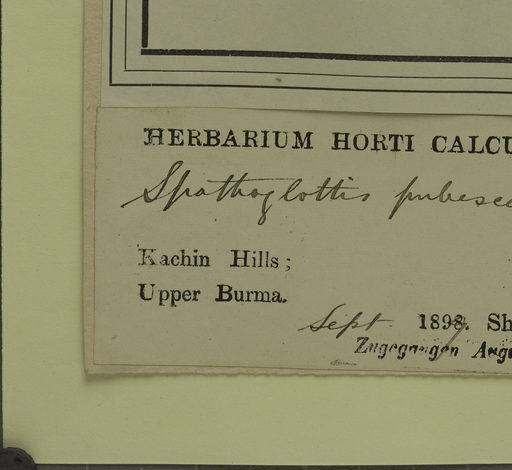 HERBARIUM HORTI CALCU
Spathoglottis pubesce
Kachin Hills;
Upper Burma.
Sept 1897. Sh
Zugegangen Aug